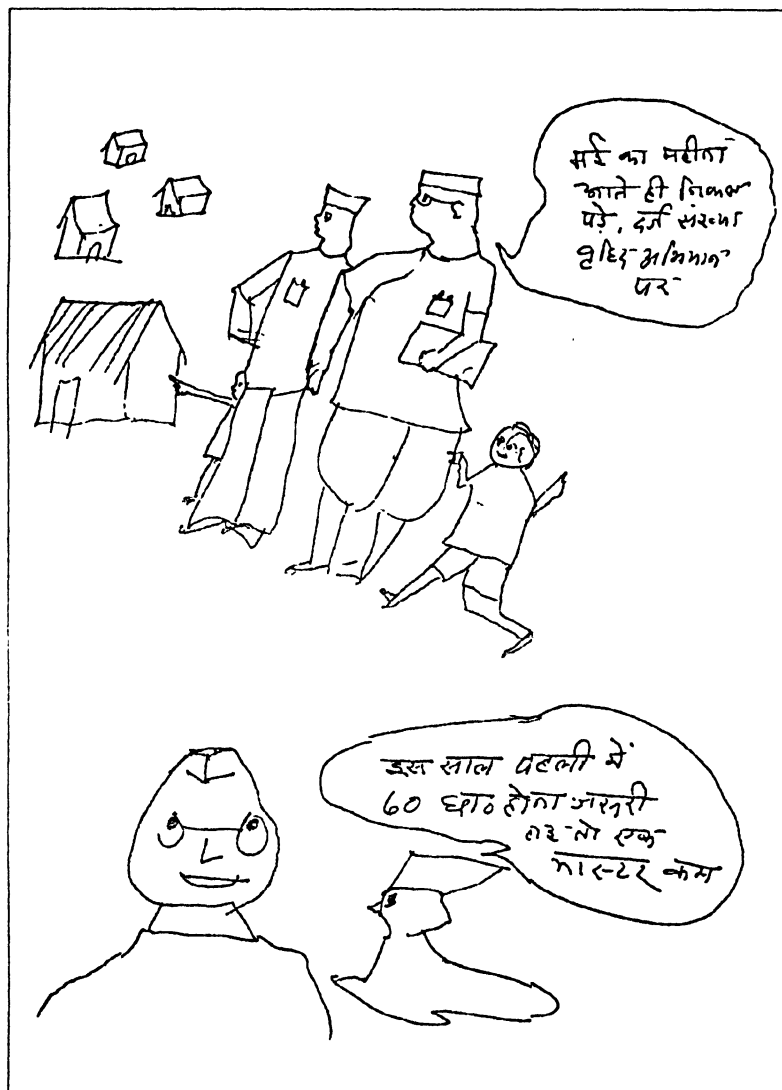 मई का महीना
आते ही निकल
पड़े, दर्ज संख्या
वृद्धि अभियान
पर
इस साल पहली में
60 छात्र होना जरूरी
नइ तो एक
मास्टर कम